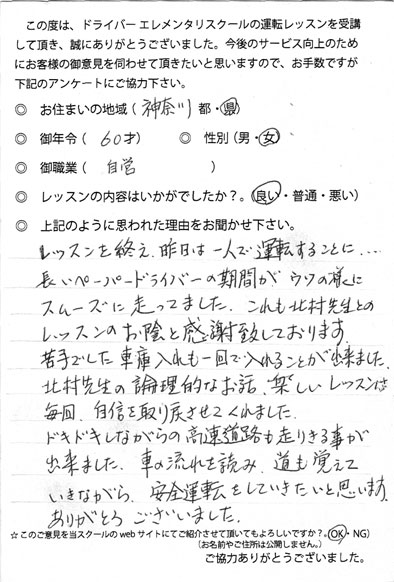 この度は、ドライバー エレメンタリスクールの運転レッスンを受講
して頂き、誠にありがとうございました。今後のサービス向上のため
にお客様の御意見を伺わせて頂きたいと思いますので、お手数ですが
下記のアンケートにご協力下さい。
◎ お住まいの地域（神奈川 都・県）
◎ 御年令（ 60才） ◎ 性別（男・女）
◎ 御職業（ 自営 ）
◎ レッスンの内容はいかがでしたか？。（良い・普通・悪い）
◎ 上記のように思われた理由をお聞かせ下さい。
レッスンを終え、昨日は一人で運転することに…
長いペーパードライバーの期間がウソの様に
スムーズに走ってました。これも北村先生との
レッスンのお陰と感謝致しております。
苦手でした車庫入れも一回で入れることが出来ました。
北村先生の論理的なお話、楽しいレッスンは
毎回、自信を取り戻させてくれました。
ドキドキしながらの高速道路も走りきる事が
出来ました。車の流れを読み、道も覚えて
いきながら、安全運転をしていきたいと思います。
ありがとうございました。
☆このご意見を当スクールの web サイトにてご紹介させて頂いてもよろしいですか？。（OK・NG）
（お名前やご住所は公開しません。）
ご協力ありがとうございました。